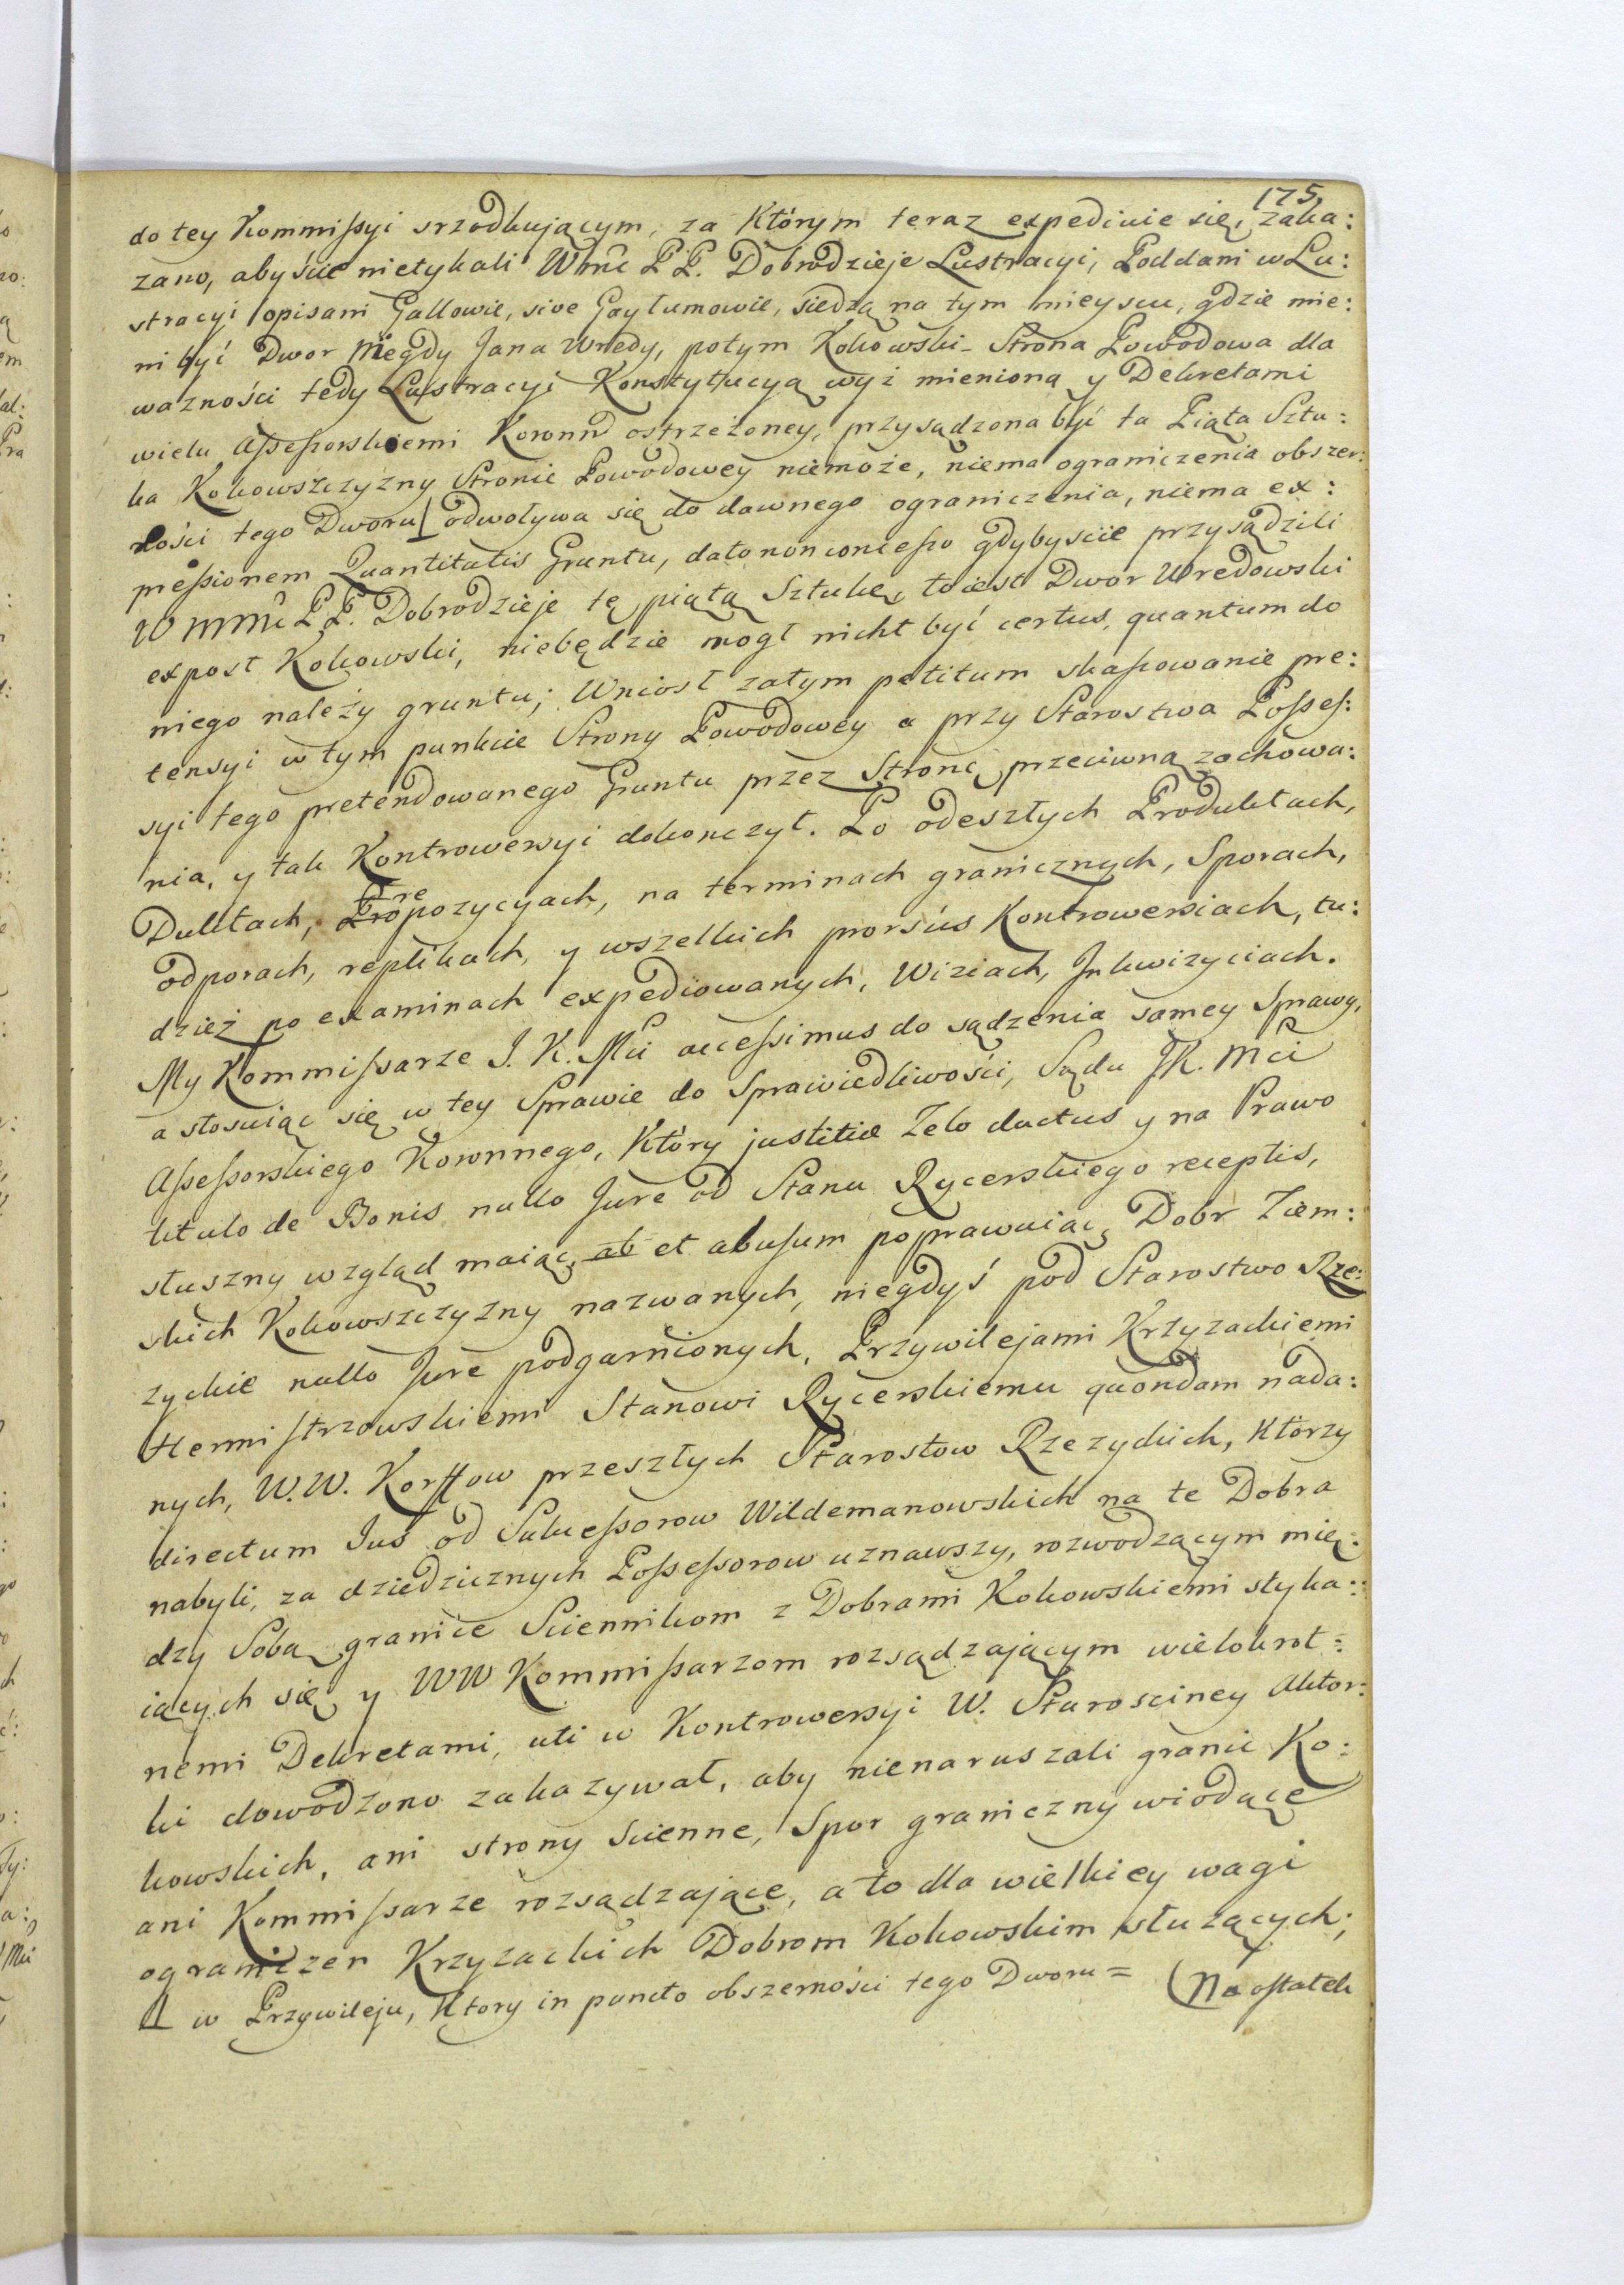 175
do tey Kommissyi srzodkującym, za Którym teraz expediuie się, zaka:
zano, abyście nietykali Wmć PP. Dobrodzieje Lustracyi, Poddani w Lu:
stracyi opisani Gallowie, sive Gaylumowie, siedzą na tym mieyscu, gdzie mie:
ni być Dwor niegdy Jana Wredy, potym Kokowski - Strona Powodowa dla
ważności tedy Lustracyi Konstytucyą wyż mienioną y Dekretami
wielu Assessorskiemi Koronn ostrzeżoney, przysądzona być ta Piąta Sztu:
ka Kokowszczyzny Stronie Powodowey niemoże, niema ograniczenia obszer:
ności tego Dworu odwoływa się do dawnego ograniczenia, niema ex:
pressionem Quantitatis Gruntu, dato non concesso gdybyscie przysądzili
W PP. Dobrodzieje tę piątą Sztukę, to iest Dwor Wredowski
expost Kokowski, niebędzie mogł nicht być certus, quantum do
niego należy gruntu; Wniosł zatym petitum skassowanie pre:
tensyi w tym punkcie Strony Powodowey a przy Starostwa Posses:
syi tego pretendowanego Gruntu przez Stronę przeciwną zachowa:
nia, y tak Kontrowersyi dokonczył. Po odeszłych Produktach,
Duktach, Propozycyach, na terminach granicznych, Sporach,
odporach, replikach, y wszelkich prorsús Kontrowersiach, tu:
dzież po examinach expediowanych, Wiziach, Inkwizyciach.
My Kommissarze J. K. Mci accessimus do sądzenia samey Sprawy,
a stosuiąc się w tey Sprawie do Sprawiedliwości, Sądu JK. Mci
Assessorskiego Koronnego, Który justitiæ Zelo ductus y na Prawo
titulo de Bonis nullo Jure od Stanu Rycerskiego receptis,
słuszny wzgląd maiąc, ab et abusum poprawuiąc, Dobr Ziem:
skich Kokowszczyzny nazwanych, niegdyś pod Starostwo Rze:
zyckie nullo Jure podgarnionych, Przywilejami Krzyzackiemi
Hermistrzowskiemi Stanowi Rycerskiemu quondam nada:
nych, W.W. Korffow przeszłych Starostow Rzezyckich, Którzy
directum Jus od Sukcessorow Wildemanowskich na te Dobra
nabyli, za dziedzicznych Possessorow uznawszy, rozwodzącym mię:
dzy Sobą granice Sciennikom z Dobrami Kokowskiemi styka:
iących się y WW Kommissarzom rozsądzającym wielokrot:
nemi Dekretami, uti w Kontrowersyi W. Starosciney Aktor:
ki dowodzono zakazywał, aby nienaruszali granic Ko:
kowskich, ani strony scienne, Spor graniczny wiodące
ani Kommissarze rozsądzające, a to dla wielkiey wagi
ograniczen Krzyzackich Dobrom Kokowskim słuzących;
w Przywileju, Ktory in puncto obszerności tego Dworu = Na ostatek